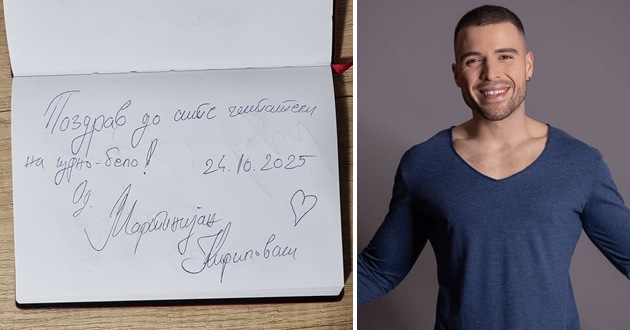 Поздрав до сите читатели
на црно-бело! 24.10.2025
Од Мартинијан
Кириловски